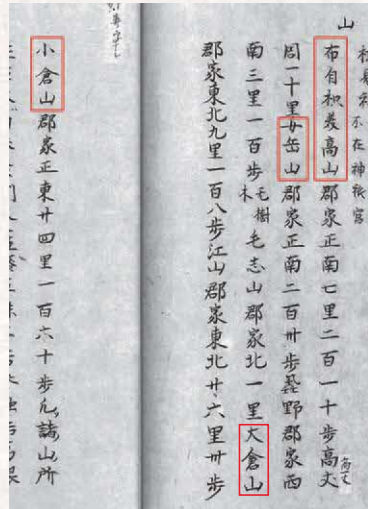 山
不在神祇官
布自枳美高山郡家正南七里二百一十歩高丈
周一十里女岳山郡家正南二百卅歩蝨野郡家西
南三里一百歩毛樹木毛志山郡家北一里大倉山
郡家東北九里一百八歩江山郡家東北廿六里卅歩
小倉山郡家正東廿四里一百六十歩凡諸山所